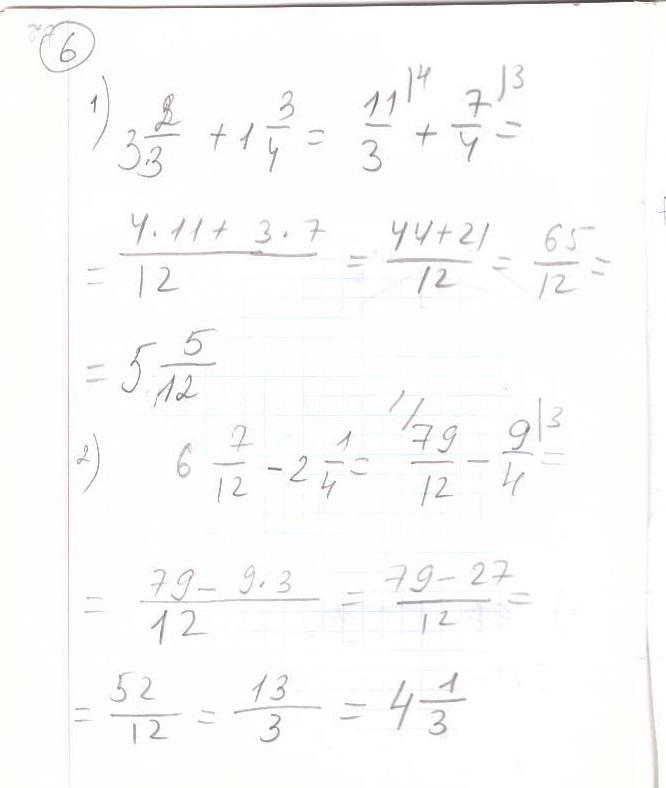 6
1) 3 2/3 + 1 3/4 = 11/3 |4 + 7/4 |3 =
= (4·11 + 3·7)/12 = (44+21)/12 = 65/12 =
= 5 5/12
2) 6 7/12 - 2 1/4 = 1/ 79/12 - 9/4 |3 =
= (79 - 9·3)/12 = (79 - 27)/12 =
= 52/12 = 13/3 = 4 1/3